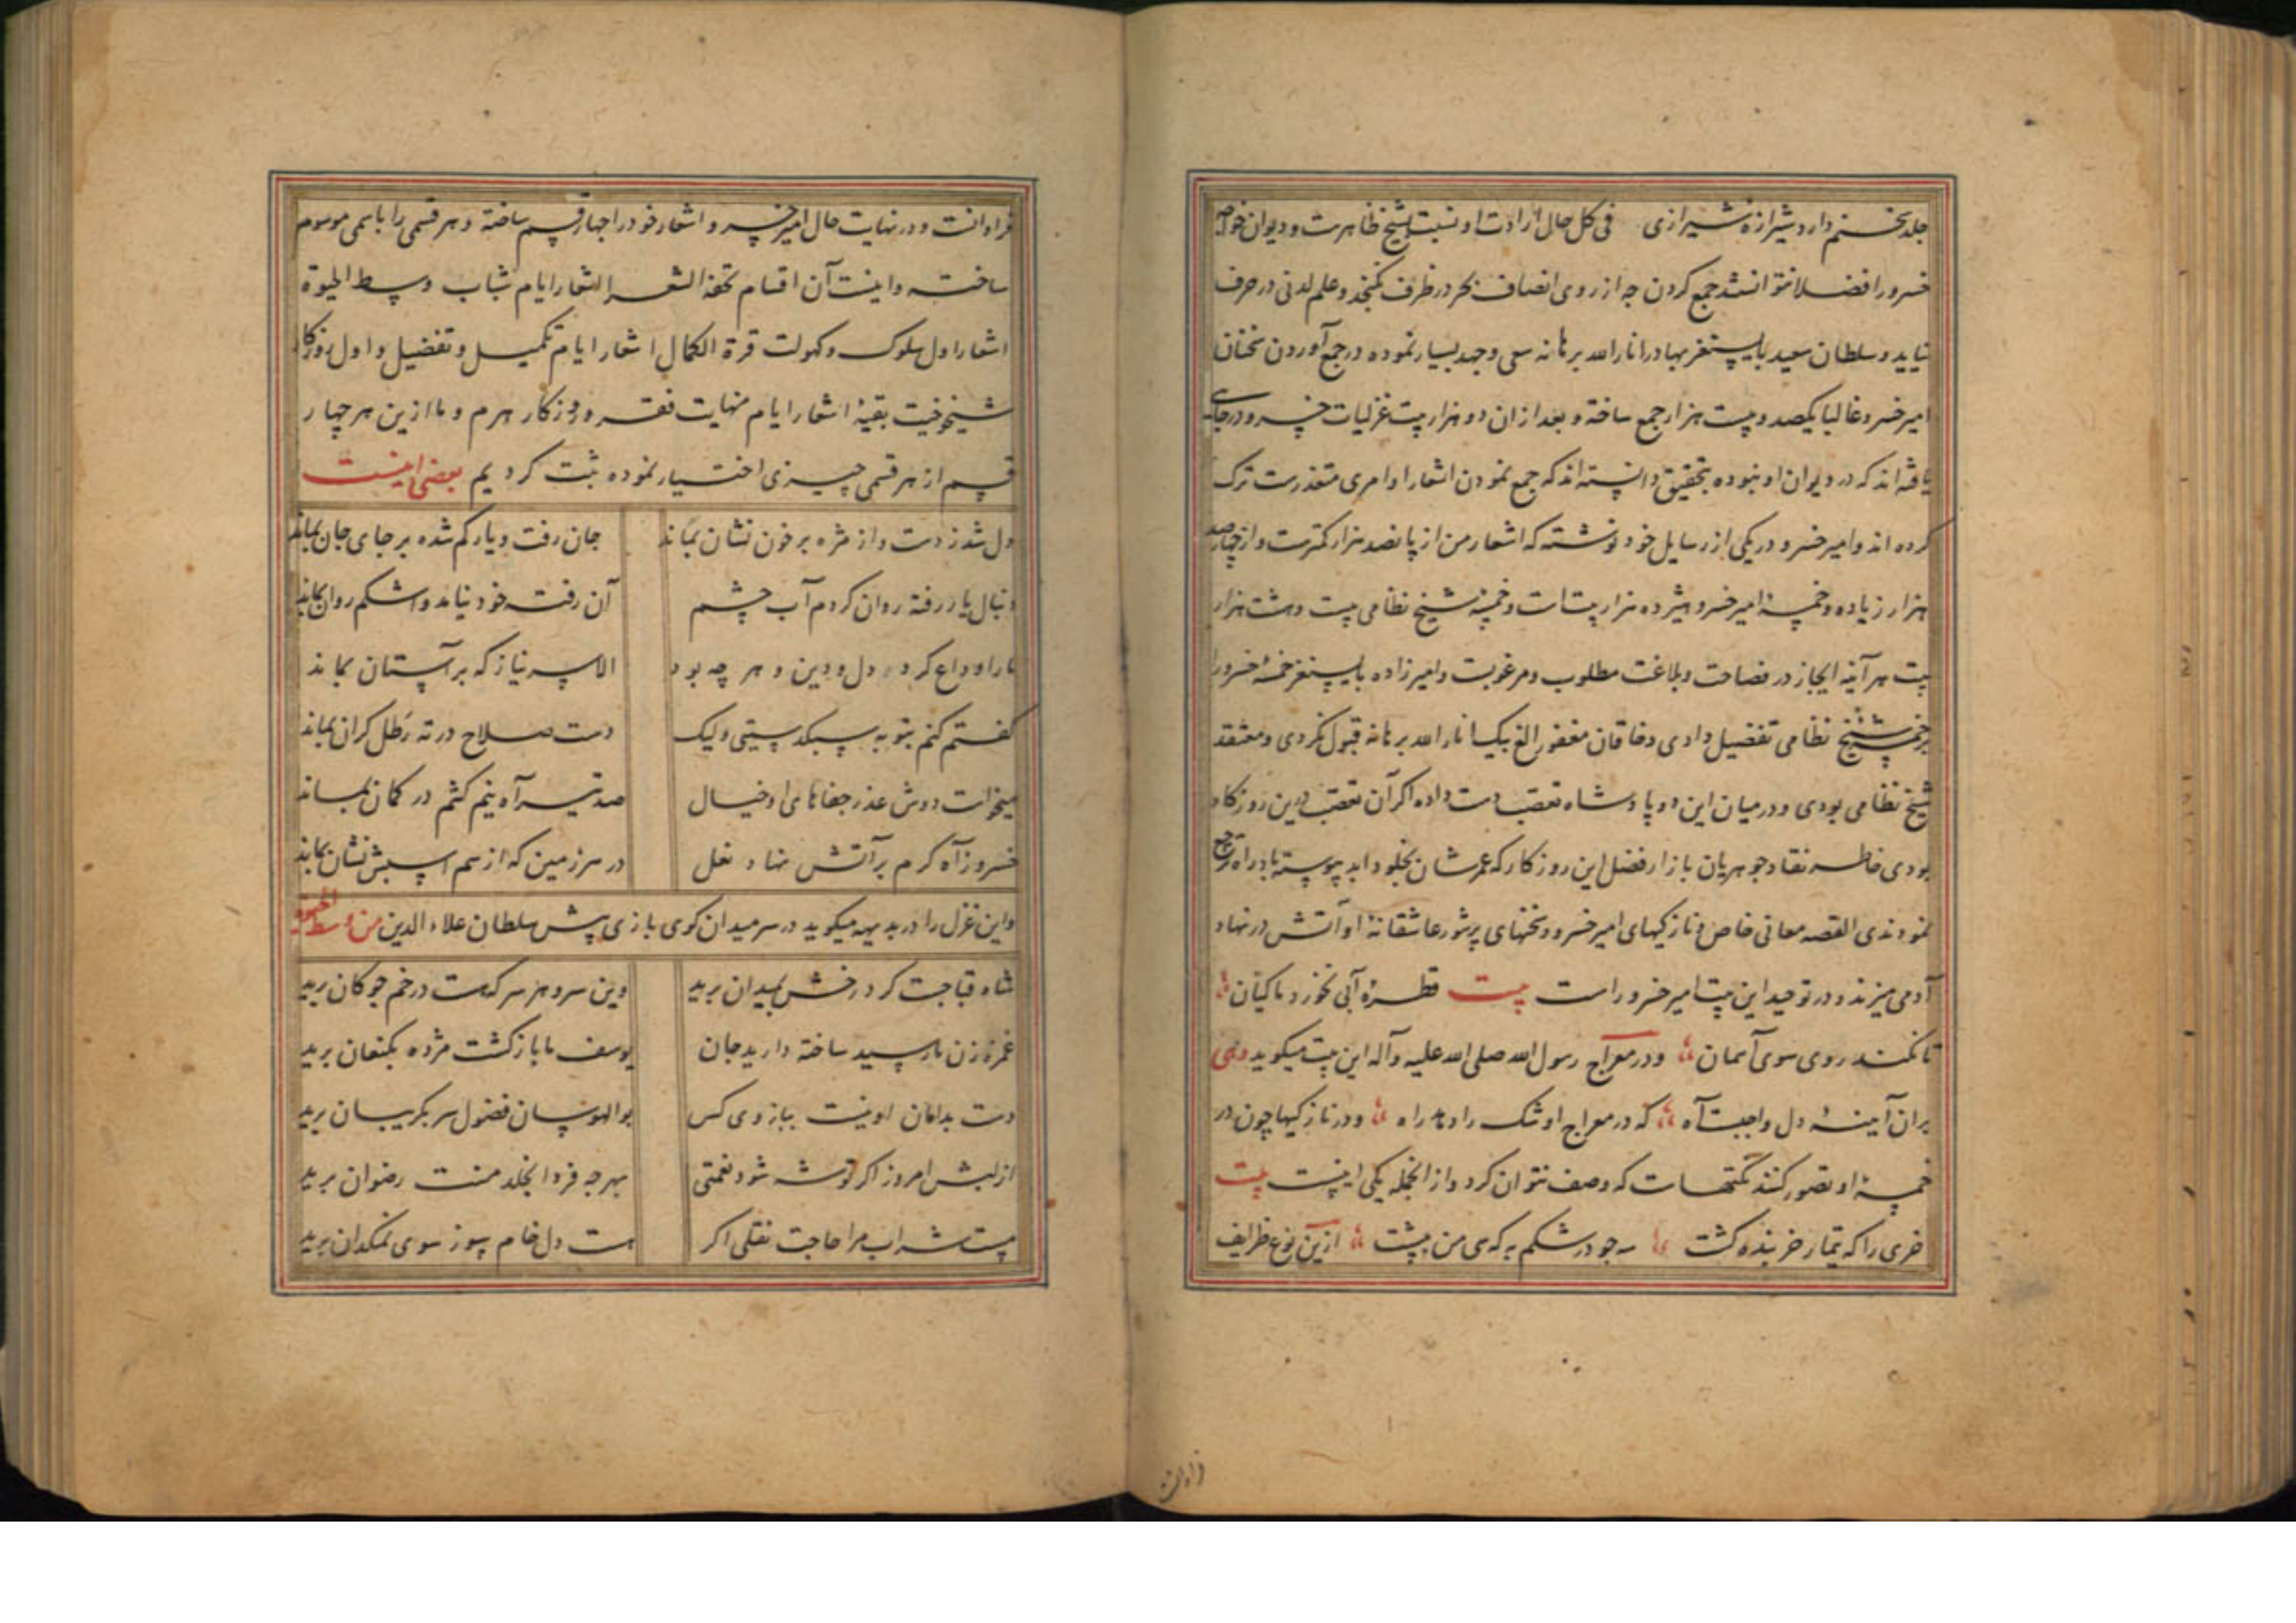 جلد سخنم دارد شیرازهٔ شیرازی فی کل حال ارادت او نسبت بشیخ ظاهرست و دیوان خواجه
خسرو را فضلا نتوانستند جمع کردن چه از روی انصاف بحر در ظرف نکنجد و علم لدنی در حرف
نیاید و سلطان سعید بایسنغر بهادر انار الله برهانه سعی و جهد بسیار نموده در جمع آوردن سخنان
امیر خسرو غالبا یکصد و بیست هزار جمع ساخته و بعد از ان دو هزار بیت غزلیات خسرو در جای
یافته اند که در دیوان او نبوده بتحقیق دانسته اند که جمع نمودن اشعار او امری متعذرست ترک
کرده اند و امیر خسرو در یکی از رسایل خود نوشته که اشعار من از پانصد هزار کمترست و از چهارصد
هزار زیاده و خمسهٔ امیر خسرو هشرده هزار بیت است و خمسهٔ شیخ نظامی بیست و هشت هزار
بیت هر آینه ایجاز در فصاحت و بلاغت مطلوب و مرغوبست و امیرزاده بایسنغر خمسهٔ خسرو را
بر خمسهٔ شیخ نظامی تفضیل دادی و خاقان مغفور الغ بیک انار الله برهانه قبول نکردی و معتقد
شیخ نظامی بودی و در میان این دو پادشاه تعصب دست داده اکر آن تعصب درین روزکار
بودی خاطر نقاد جوهریان بازار فضل این روزکار که عمرشان بخلود ابد پیوسته باد راه ترجیح
نمودندی القصه معانی خاص و نازکیهای امیر خسرو و سخنهای پرشور عاشقانهٔ او آتش در نهاد
آدمی میزند و در توحید این بیت امیر خسرو راست بیت قطرهٔ آبی نخورد ماکیان
تا نکند روی سوی آسمان و در معراج رسول الله صلی الله علیه و آله این بیت میکوید
بران آیینهٔ دل واجبست آه که در معراج او شک را دهد راه و در نازکیها چون در
خمسهٔ او تصور کنند نکتهاست که وصف نتوان کرد و از انجمله یکی اینست بیت
خری را که تیمار خربنده کشت به جو در شکم به که سی من بپشت ازین نوع ظرایف
فراوانست و در نهایت حال امیر خسرو اشعار خود را چهار قسم ساخته و هر قسمی را باسمی موسوم
ساخته و اینست آن اقسام تحفة الشعر اشعار ایام شباب وسط الحیوة
اشعار اول سلوک و کهولت غرة الکمال اشعار ایام تکمیل و تفضیل و اول روزکار
شیخوخیت بقیهٔ اشعار ایام نهایت فقر و روزکار هرم و ما ازین هر چهار
قسم از هر قسمی چیزی اختیار نموده ثبت کردیم بعضی اینست
دل شد ز دست و از مژه بر خون نشان بماند جان رفت و یار کم شده بر جای جان بماند
دنبال یار رفته روان کردم آب چشم آن رفت خود نیامد و اشکم روان بماند
ما را وداع کرد دل و دین و هر چه بود الا سر نیاز که بر آستان بماند
کفتم کنم بتوبه سبکدستیی ولیک دست صلاح در ته رطل کران بماند
میخواست دوش عذر جفاهای او خیال صد تیر آه نیم کشم در کمان بماند
خسرو ز آه کرم بر آتش نهاد نعل در سرزمین که از سم اسبش نشان بماند
و این غزل را در بدیهه میکوید در سر میدان کوی بازی پیش سلطان علاء الدین من وسط الحیوة
شاه قبا چست کرد رخش بمیدان برید وین سر و هر سر که هست در خم چوکان برید
غمزه زن ما رسید ساخته دارید جان یوسف ما باز کشت مژده بکنعان برید
دست بدامان او نیست ببازوی کس بوالهوسان فضول سر بکریبان برید
از لبش امروز اکر توشه شود نعمتی بهر چه فردا بخلد منت رضوان برید
مست شراب مرا حاجت نقلی اکر هست دل خام سوز سوی نمکدان برید
فراوانست